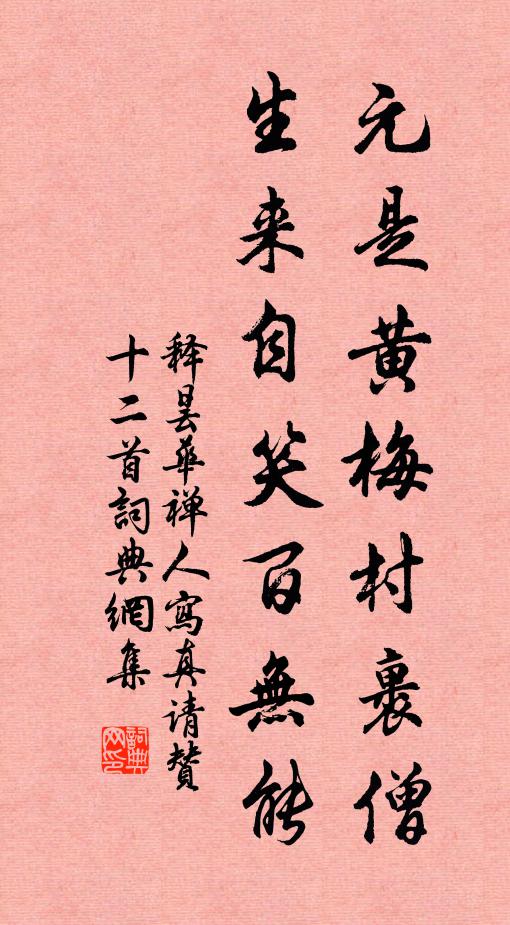 元是黄梅村裹僧
生来自笑百無能
释昙華禅人寫真请賛
十二首詞典網集
詞典網印